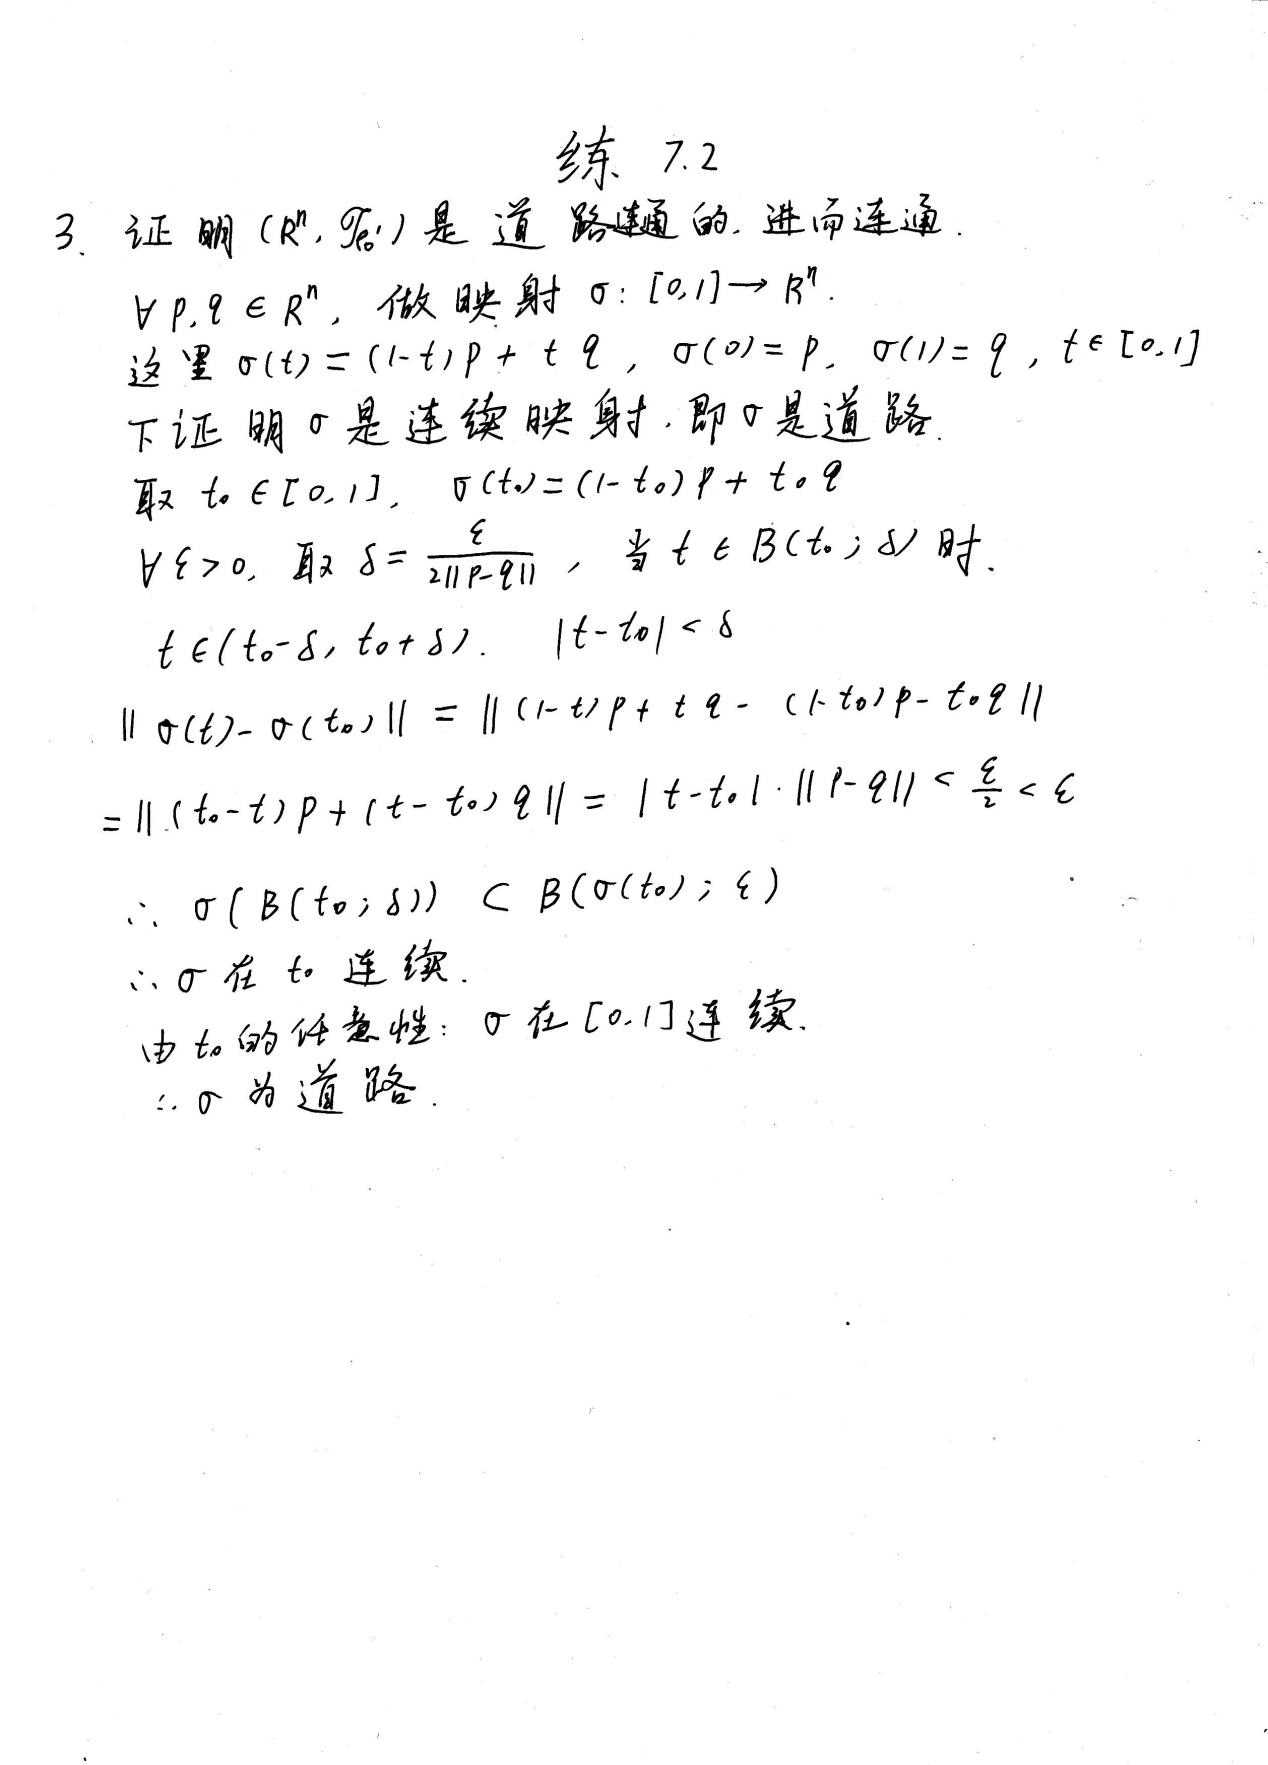 练 7.2
3. 证明(Rⁿ, 𝒯e')是道路连通的,进而连通.
∀ p, q ∈ Rⁿ, 做映射 σ: [0,1] → Rⁿ.
这里 σ(t) = (1-t)p + t q , σ(0) = p, σ(1) = q , t ∈ [0,1]
下证明σ是连续映射,即σ是道路.
取 t₀ ∈ [0,1], σ(t₀) = (1-t₀)p + t₀q
∀ ε > 0, 取 δ = ε/(2||p-q||) , 当 t ∈ B(t₀; δ) 时.
t ∈ (t₀-δ, t₀+δ). |t-t₀| < δ
||σ(t) - σ(t₀)|| = ||(1-t)p + tq - (1-t₀)p - t₀q||
= ||(t₀-t)p + (t-t₀)q|| = |t-t₀|·||p-q|| < ε/2 < ε
∴ σ(B(t₀; δ)) ⊂ B(σ(t₀); ε)
∴ σ在 t₀ 连续.
由t₀的任意性: σ在[0,1]连续.
∴ σ为道路.